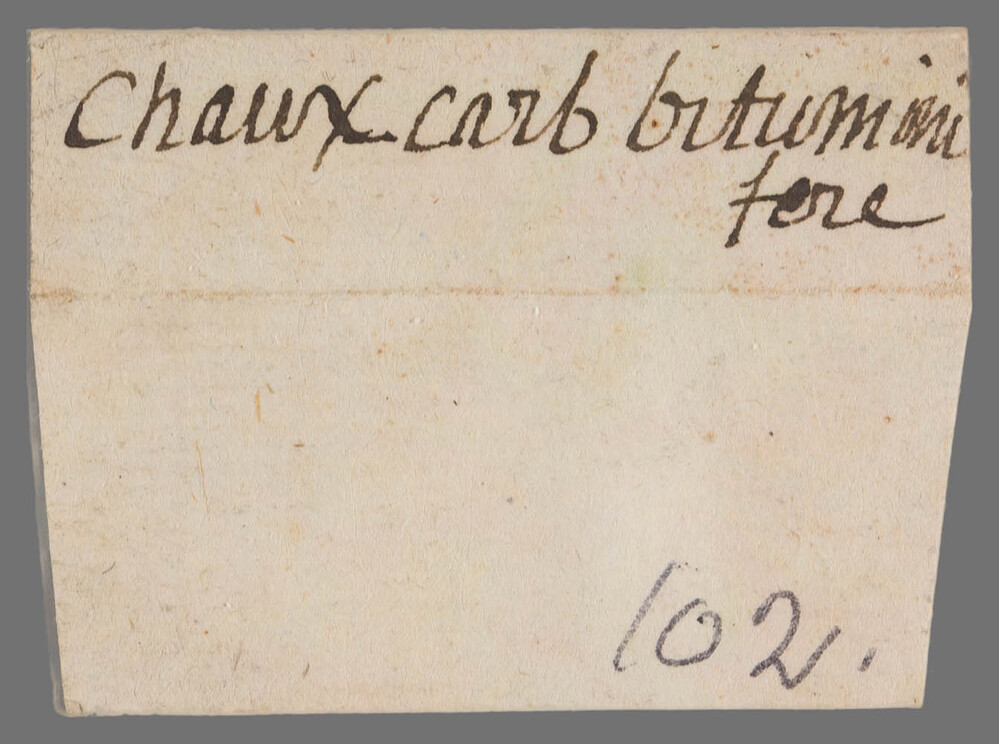 Chaux carb bitumini
fere
102.